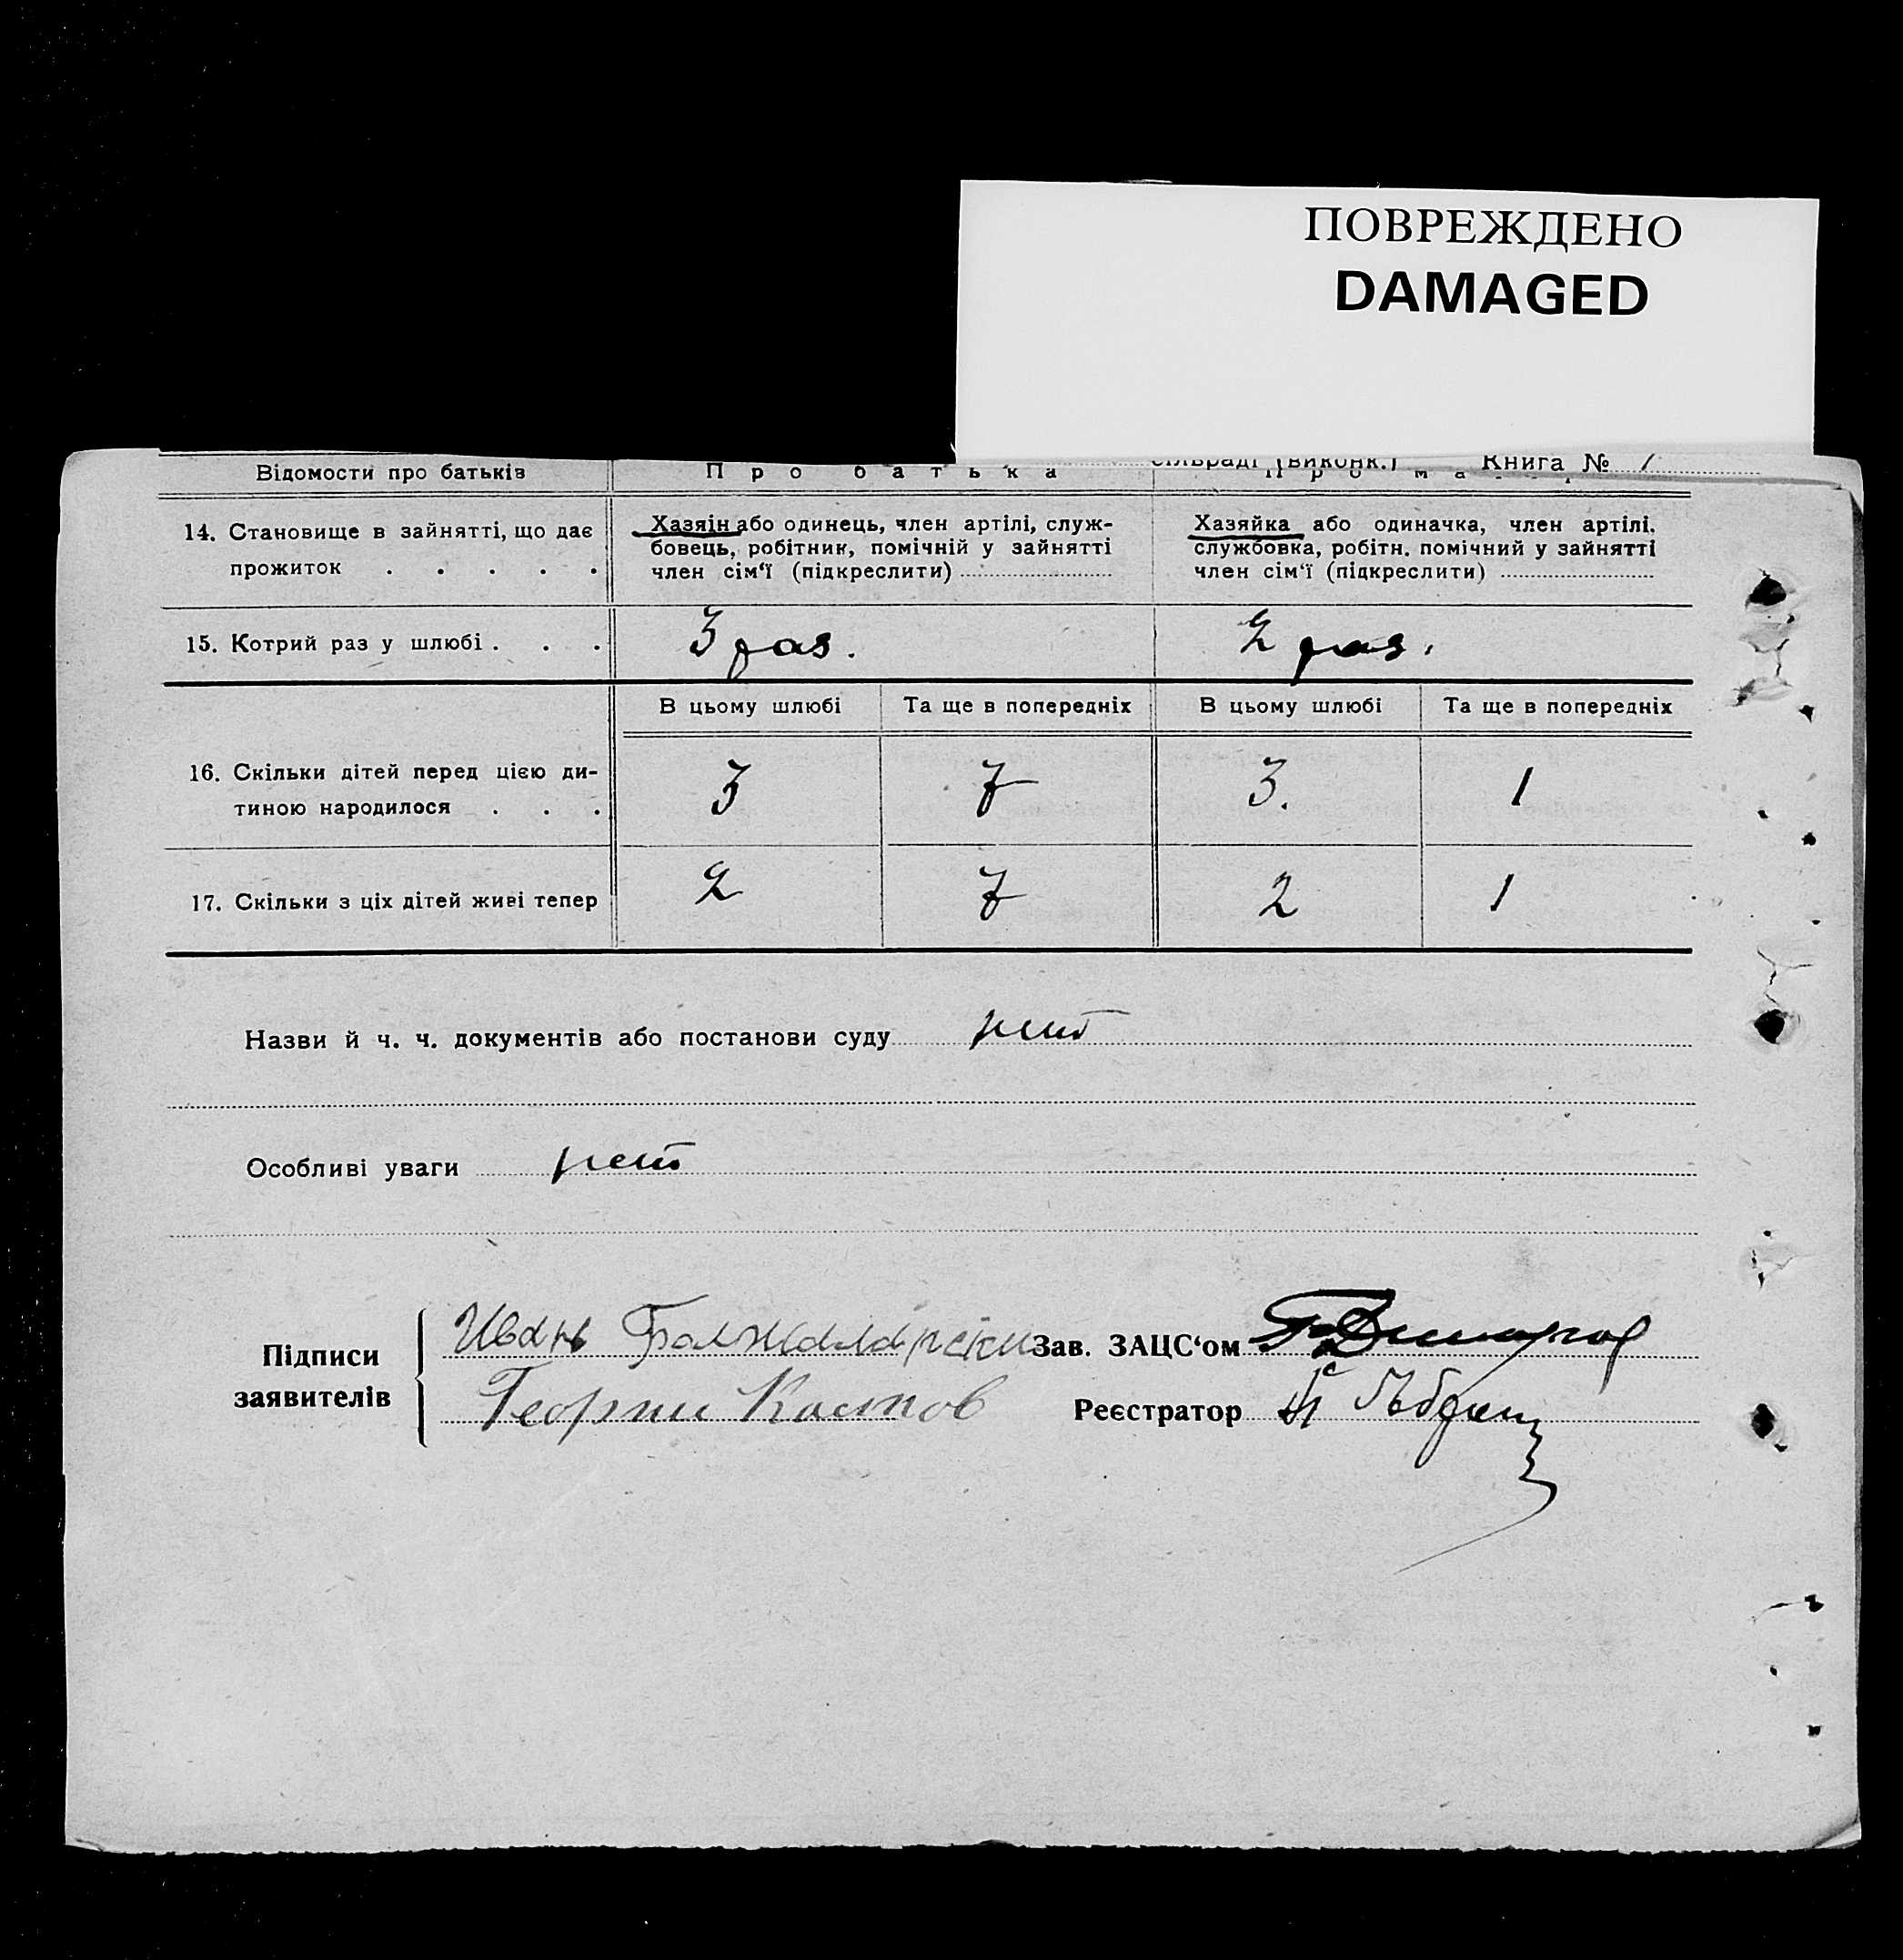 ПОВРЕЖДЕНО
DAMAGED
Книга № 1
Відомости про батьків
Про батька
14. Становище в зайнятті, що дає
прожиток . . . . .
Хазяін або одинець, член артілі, служ-
бовець, робітник, помічній у зайнятті
член сім‘ї (підкреслити)
Хазяйка або одиначка, член артілі,
службовка, робітн. помічний у зайнятті
член сім‘ї (підкреслити)
15. Котрий раз у шлюбі . . .
3 раз.
2 раз.
В цьому шлюбі
Та ще в попередніх
В цьому шлюбі
Та ще в попередніх
16. Скільки дітей перед цією ди-
тиною народилося . . .
3
7
3.
1
17. Скільки з ціх дітей живі тепер
2
7
2
1
Назви й ч. ч. документів або постанови суду нет
Особливі уваги нет
Підписи
заявителів
Иванъ
Георги Костов
Зав. ЗАЦС‘ом
Реєстратор